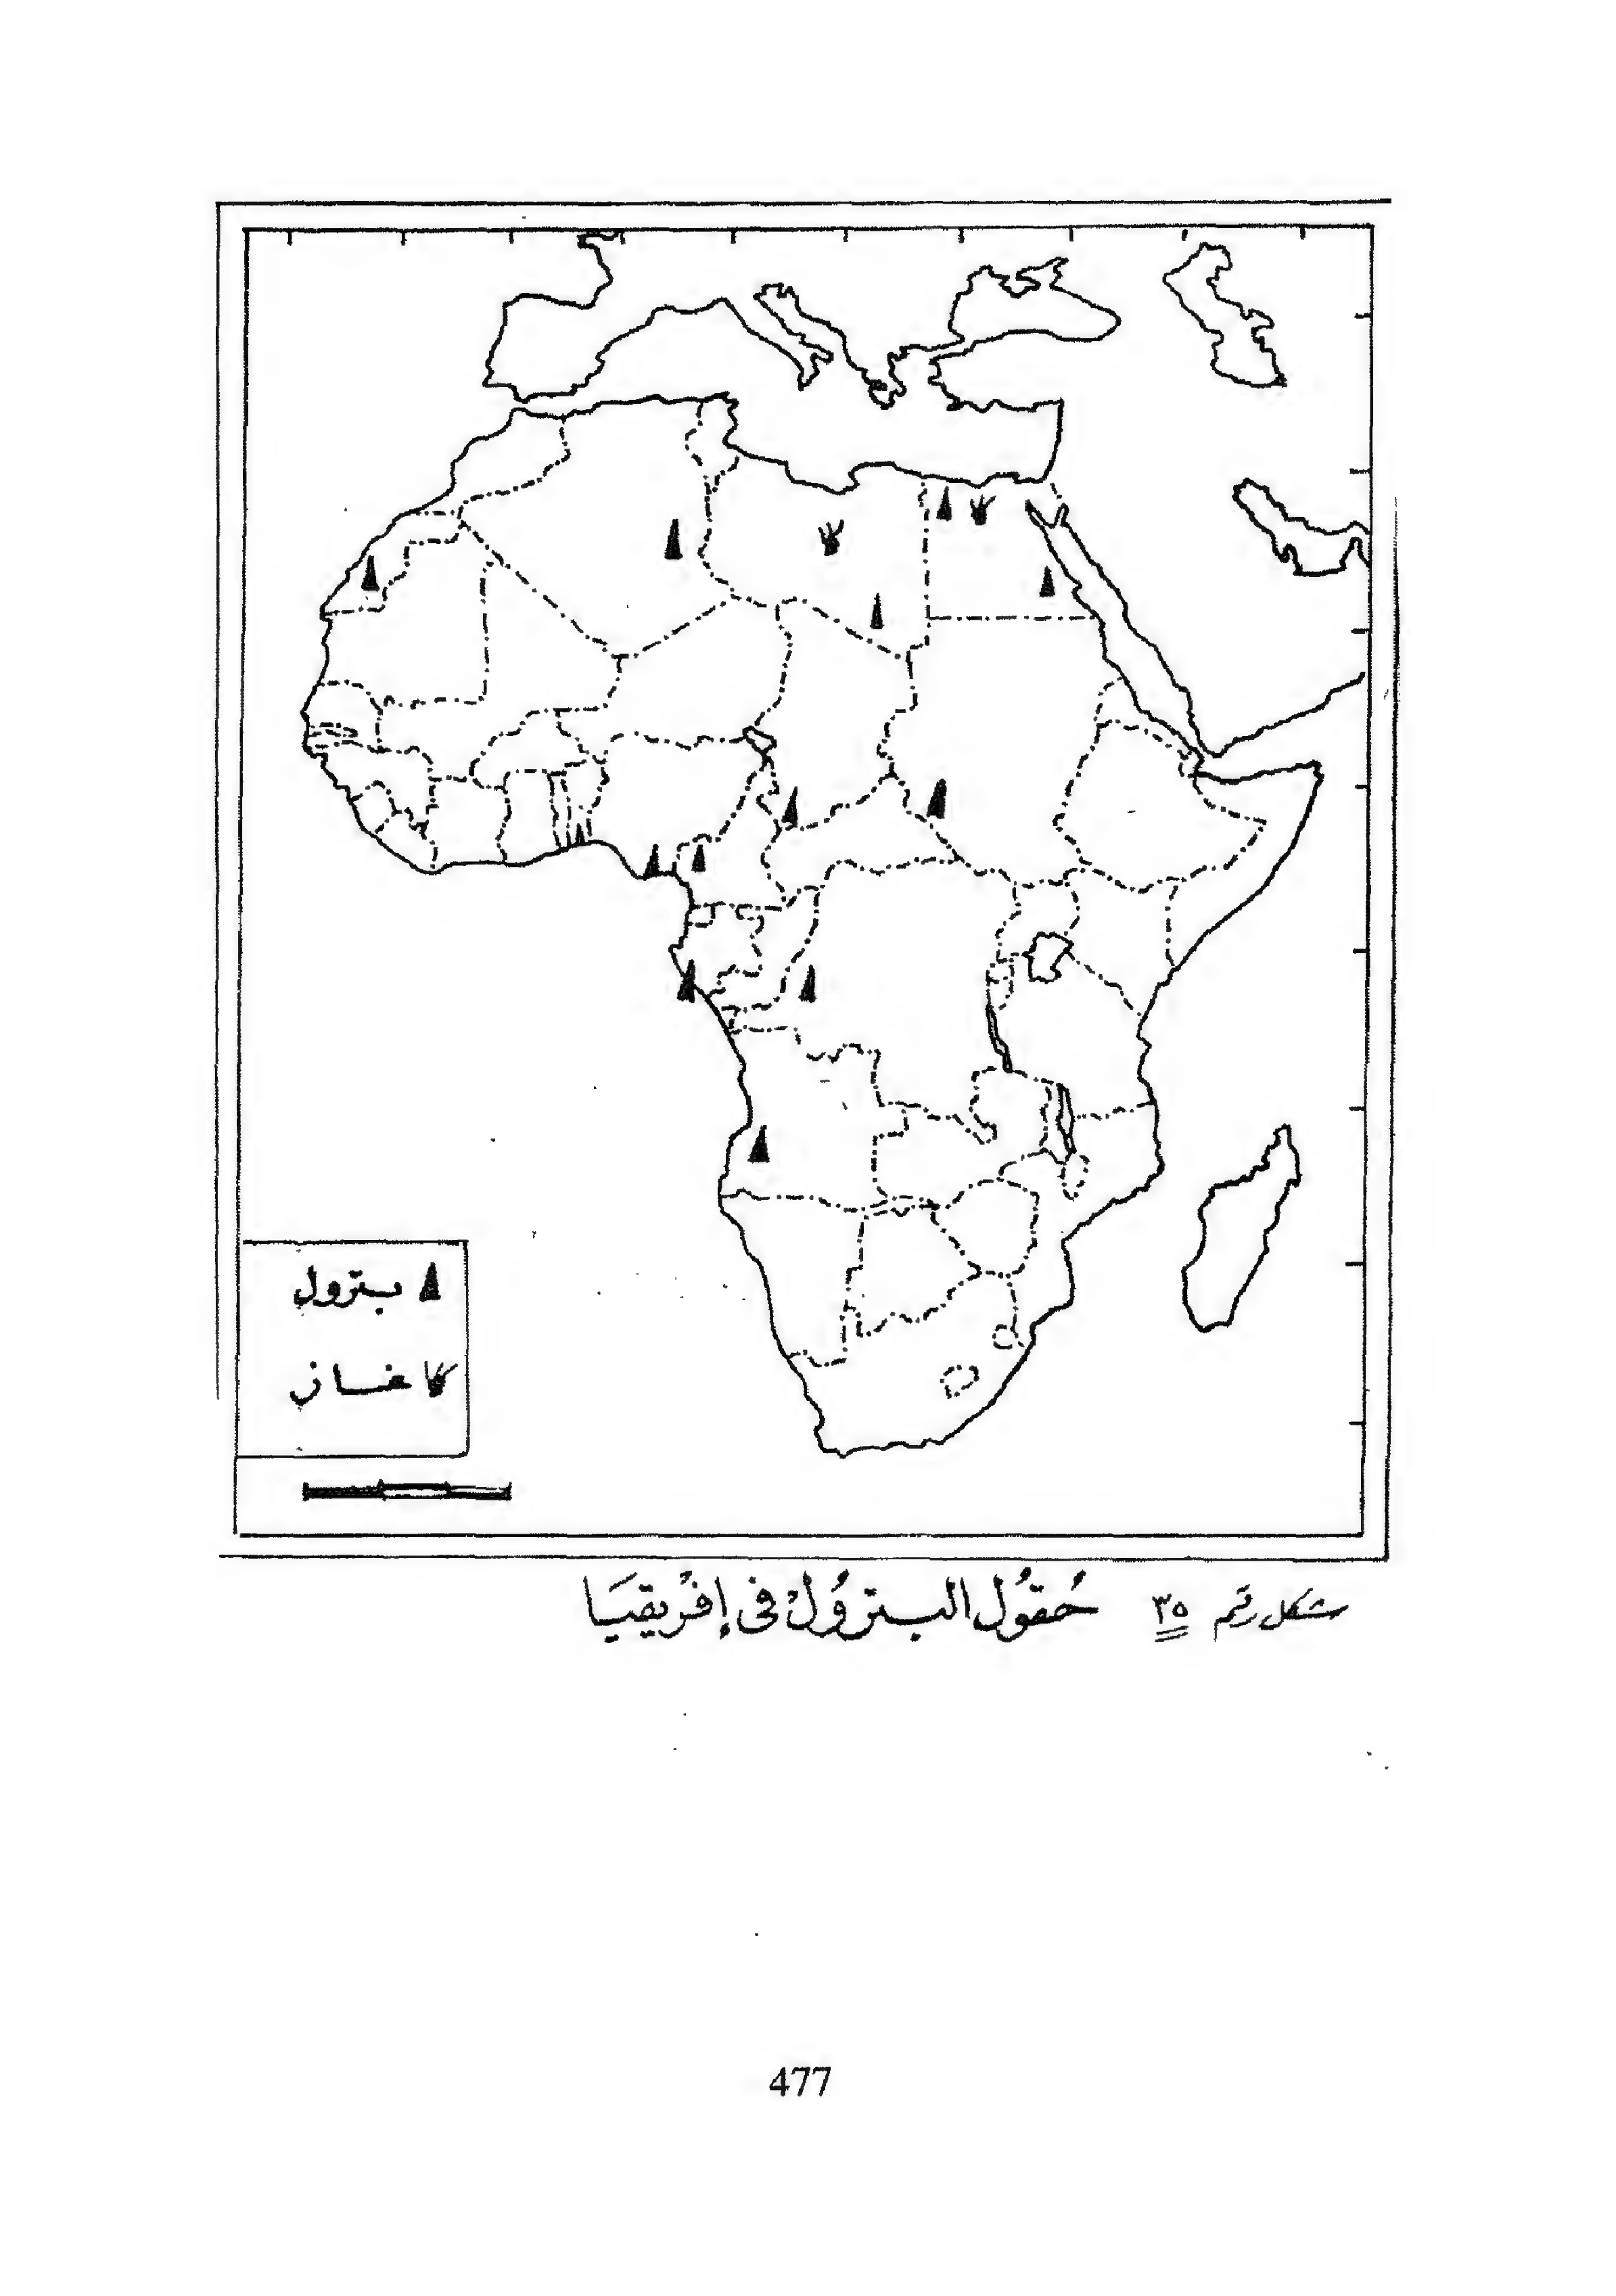 بترول
غاز
شكل رقم ٣٥ حُقوُل البترُوُلْ فى إفْريقيَا
477